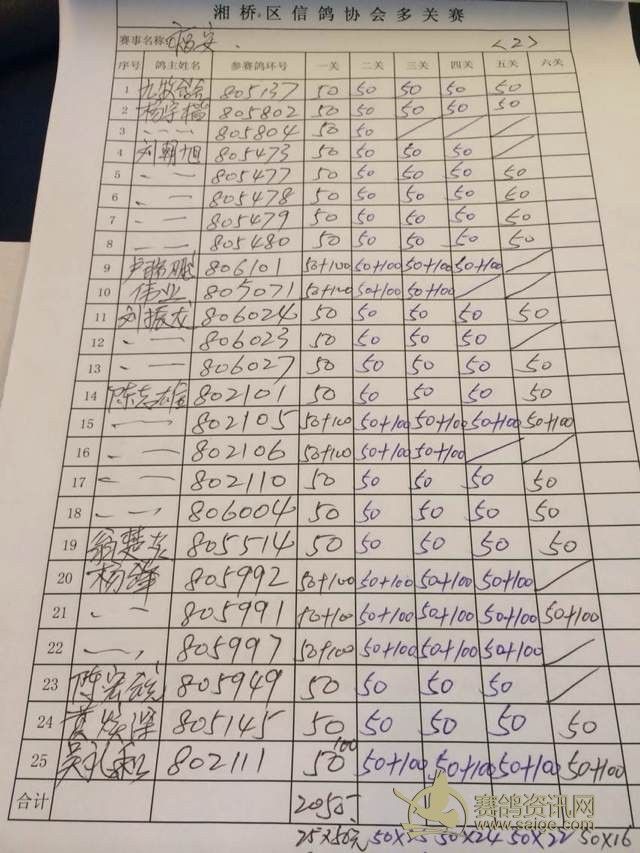 湘桥区信鸽协会多关赛
赛事名称: 福安 <2>
序号 鸽主姓名 参赛鸽环号 一关 二关 三关 四关 五关 六关
1 805137 50 50 50 50 50
2 杨宇楷 805802 50 50 50 50 50
3 〃 — 805804 50 50 / / /
4 刘朝旭 805473 50 50 50 50 /
5 〃 — 805477 50 50 50 50 50
6 〃 — 805478 50 50 50 50 50
7 〃 — 805479 50 50 50 50 50
8 〃 — 805480 50 50 50 50 50
9 806101 50+100 50+100 50+100 50+100 /
10 伟业 805071 50+100 50+100 50+100 / /
11 刘振龙 806024 50 50 50 50 50
12 〃 — 806023 50 50 50 50 /
13 〃 — 806027 50 50 50 50 50
14 陈志雄 802101 50 50 50 50 50
15 〃 — 802105 50+100 50+100 50+100 50+100 50+100
16 〃 — 802106 50+100 50+100 50+100 / /
17 〃 — 802110 50 50 50 50 50
18 〃 — 806004 50 50 50 50 50
19 翁楚 805514 50 50 50 50 50
20 杨锋 805992 50+100 50+100 50+100 50+100 /
21 〃 — 805991 50+100 50+100 50+100 50+100 50+100
22 〃 — 805997 50+100 50+100 50+100 50+100 /
23 陈宏 805949 50 50 50 50 /
24 黄 805145 50 50 50 50 50
25 吴礼 802111 50 100 50+100 50+100 50+100 50+100
合计 2050
25×50元 50×25 50×24 50×22 50×16
赛鸽资讯网
www.saige.com